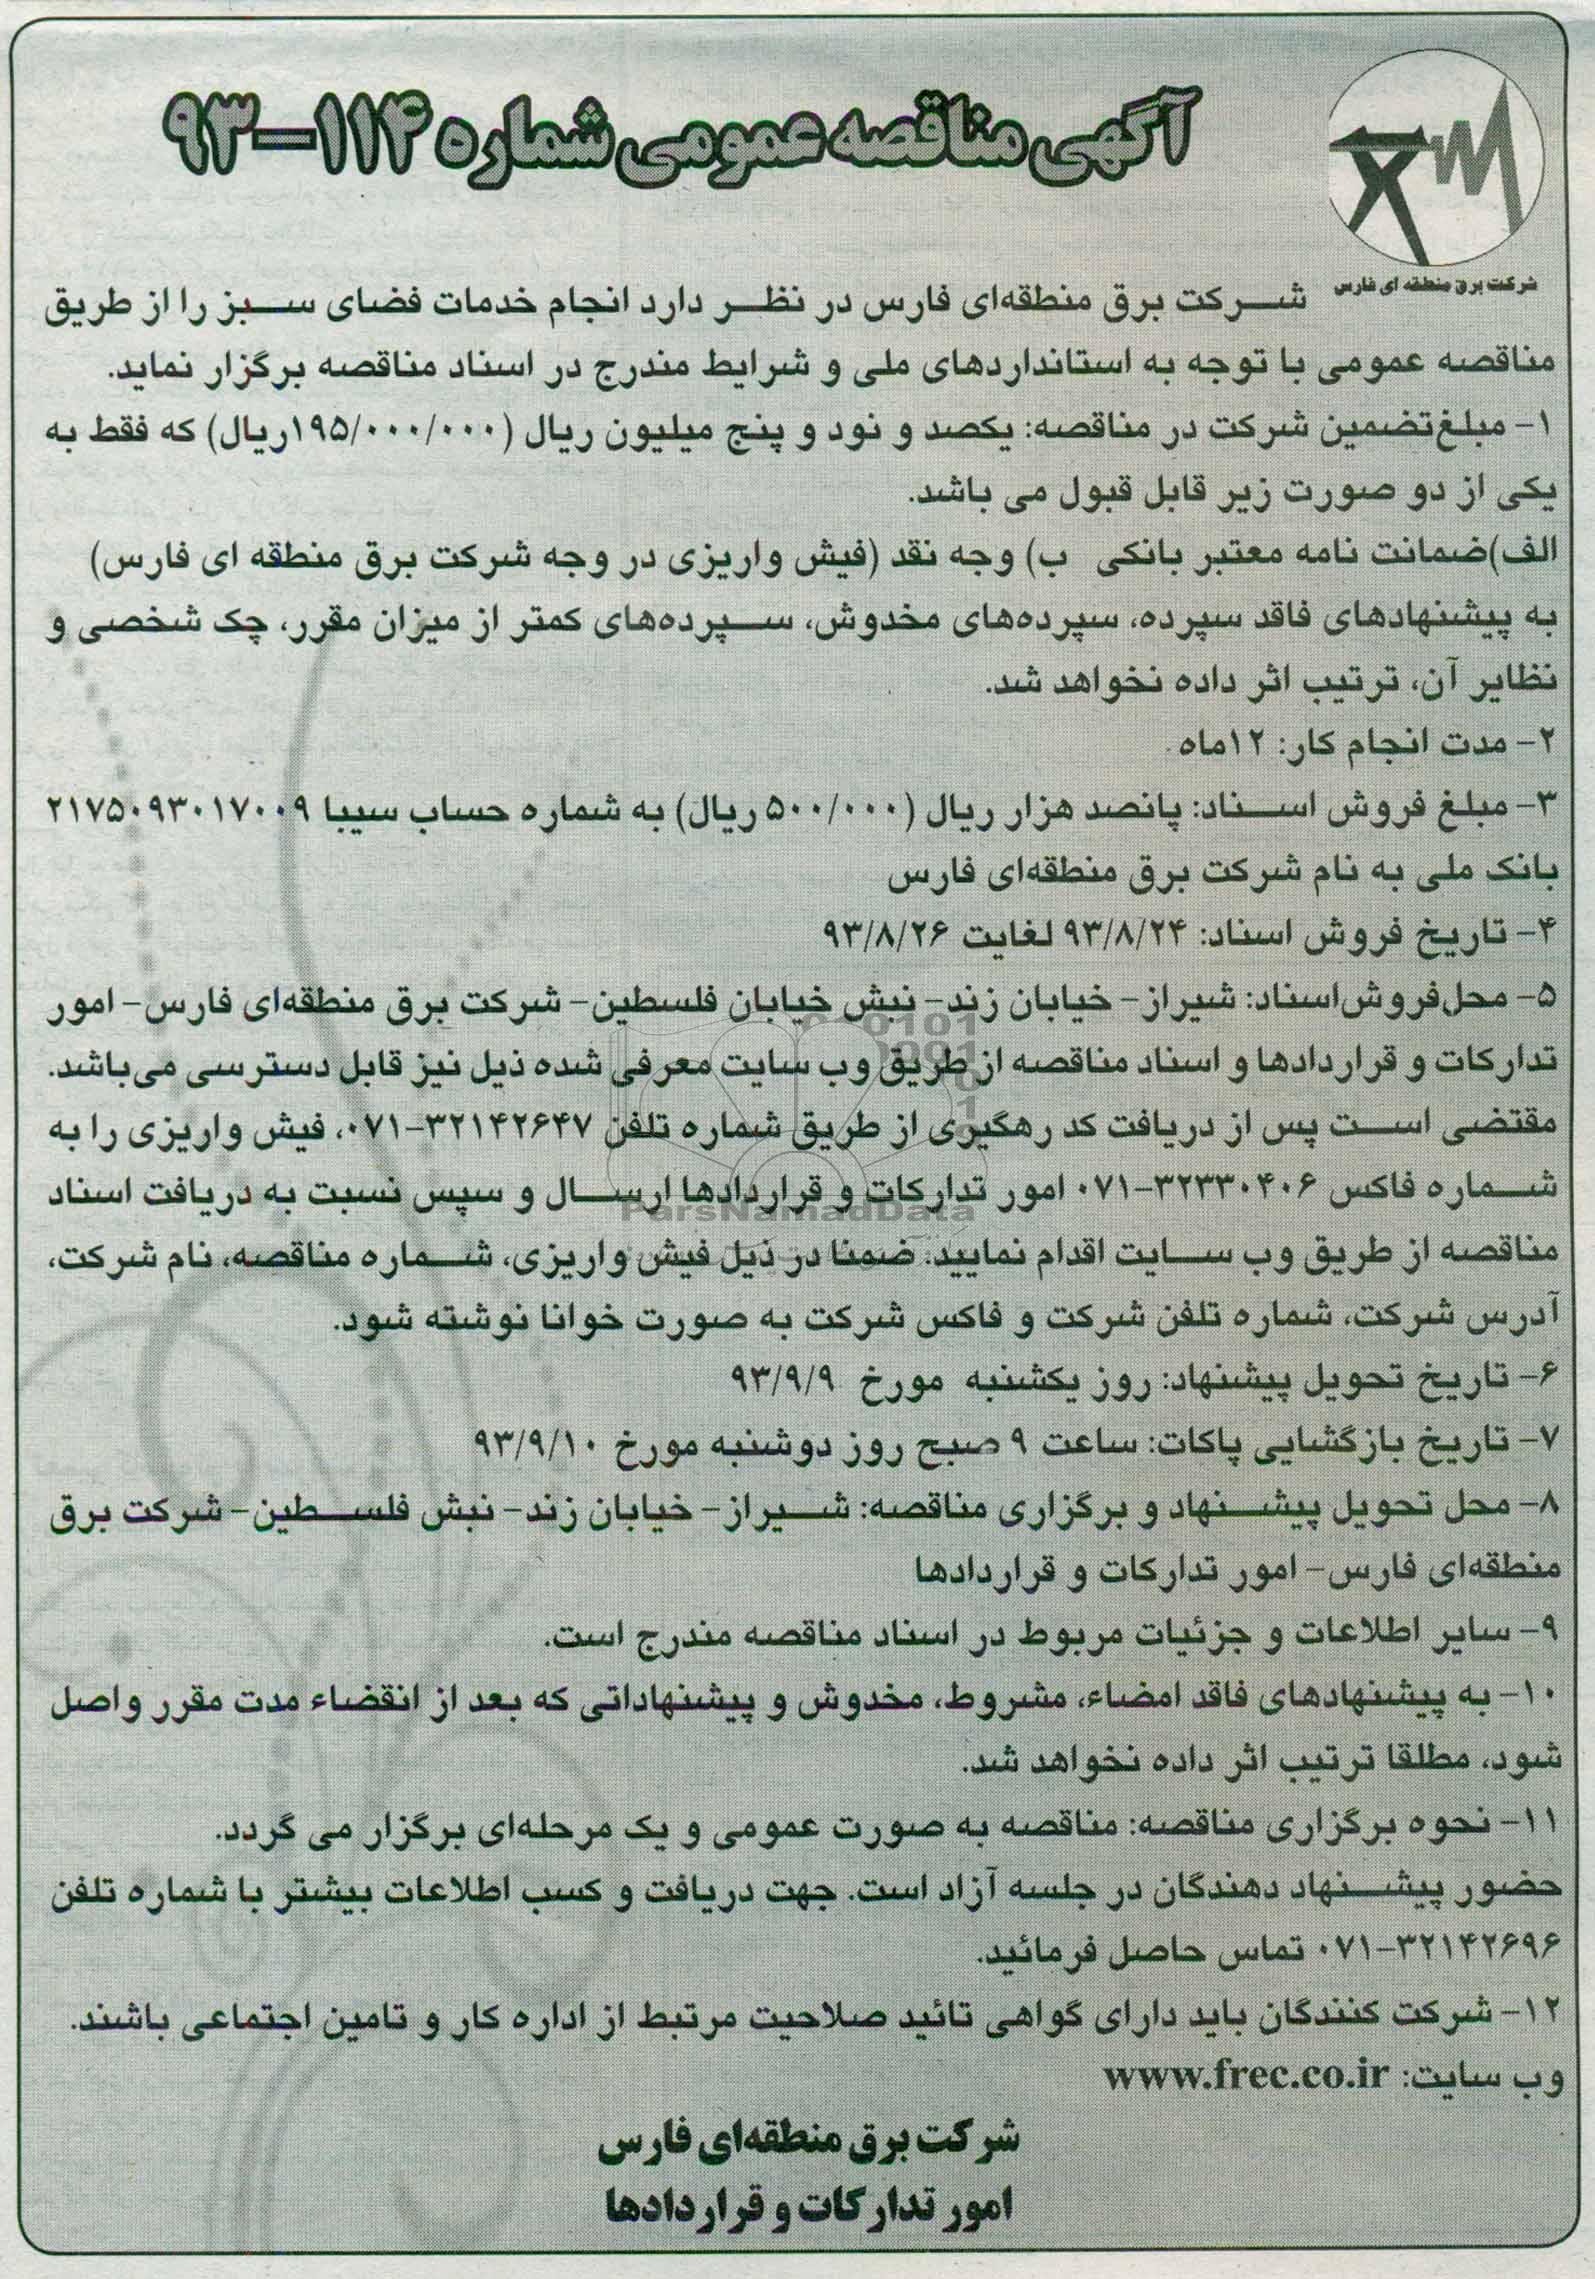 آگهی مناقصه عمومی شماره ۱۱۴-۹۳
شرکت برق منطقه ای فارس
شرکت برق منطقه‌ای فارس در نظر دارد انجام خدمات فضای سبز را از طریق
مناقصه عمومی با توجه به استانداردهای ملی و شرایط مندرج در اسناد مناقصه برگزار نماید.
۱- مبلغ‌تضمین شرکت در مناقصه: یکصد و نود و پنج میلیون ریال (۱۹۵/۰۰۰/۰۰۰ریال) که فقط به
یکی از دو صورت زیر قابل قبول می باشد.
الف)ضمانت نامه معتبر بانکی ب) وجه نقد (فیش واریزی در وجه شرکت برق منطقه ای فارس)
به پیشنهادهای فاقد سپرده، سپرده‌های مخدوش، سپرده‌های کمتر از میزان مقرر، چک شخصی و
نظایر آن، ترتیب اثر داده نخواهد شد.
۲- مدت انجام کار: ۱۲ماه
۳- مبلغ فروش اسناد: پانصد هزار ریال (۵۰۰/۰۰۰ ریال) به شماره حساب سیبا ۲۱۷۵۰۹۳۰۱۷۰۰۹
بانک ملی به نام شرکت برق منطقه‌ای فارس
۴- تاریخ فروش اسناد: ۹۳/۸/۲۴ لغایت ۹۳/۸/۲۶
۵- محل‌فروش‌اسناد: شیراز- خیابان زند- نبش خیابان فلسطین- شرکت برق منطقه‌ای فارس- امور
تدارکات و قراردادها و اسناد مناقصه از طریق وب سایت معرفی شده ذیل نیز قابل دسترسی می‌باشد.
مقتضی است پس از دریافت کد رهگیری از طریق شماره تلفن ۳۲۱۴۲۶۴۷-۰۷۱، فیش واریزی را به
شماره فاکس ۳۲۳۳۰۴۰۶-۰۷۱ امور تدارکات و قراردادها ارسال و سپس نسبت به دریافت اسناد
ParsNamadData
مناقصه از طریق وب سایت اقدام نمایید. ضمنا در ذیل فیش واریزی، شماره مناقصه، نام شرکت،
آدرس شرکت، شماره تلفن شرکت و فاکس شرکت به صورت خوانا نوشته شود.
۶- تاریخ تحویل پیشنهاد: روز یکشنبه مورخ ۹۳/۹/۹
۷- تاریخ بازگشایی پاکات: ساعت ۹ صبح روز دوشنبه مورخ ۹۳/۹/۱۰
۸- محل تحویل پیشنهاد و برگزاری مناقصه: شیراز- خیابان زند- نبش فلسطین- شرکت برق
منطقه‌ای فارس- امور تدارکات و قراردادها
۹- سایر اطلاعات و جزئیات مربوط در اسناد مناقصه مندرج است.
۱۰- به پیشنهادهای فاقد امضاء، مشروط، مخدوش و پیشنهاداتی که بعد از انقضاء مدت مقرر واصل
شود، مطلقا ترتیب اثر داده نخواهد شد.
۱۱- نحوه برگزاری مناقصه: مناقصه به صورت عمومی و یک مرحله‌ای برگزار می گردد.
حضور پیشنهاد دهندگان در جلسه آزاد است. جهت دریافت و کسب اطلاعات بیشتر با شماره تلفن
۳۲۱۴۲۶۹۶-۰۷۱ تماس حاصل فرمائید.
۱۲- شرکت کنندگان باید دارای گواهی تائید صلاحیت مرتبط از اداره کار و تامین اجتماعی باشند.
وب سایت: www.frec.co.ir
شرکت برق منطقه‌ای فارس
امور تدارکات و قراردادها